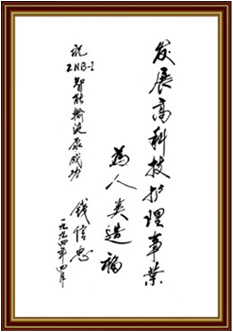 发展高科技护理事业
为人类造福
祝
ZNB-I
智能输液泵成功
钱信忠
一九九四年四月